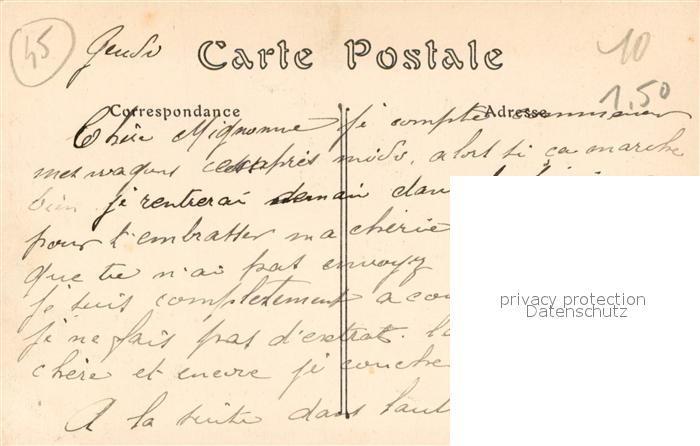 45 Jeudi Carte Postale 10
1.50
Correspondance Adresse
Chère Mignonne je compte commencer
mes wagons cet après midi, alors si ça marche
bien je rentrerai demain dans
pour t'embrasser ma chérie
que tu n'ai pas envoyz
je suis completement a cou
je ne fais pas d'extrat.
chère et encore je couche
A la suite dans l'aut
privacy protection
Datenschutz